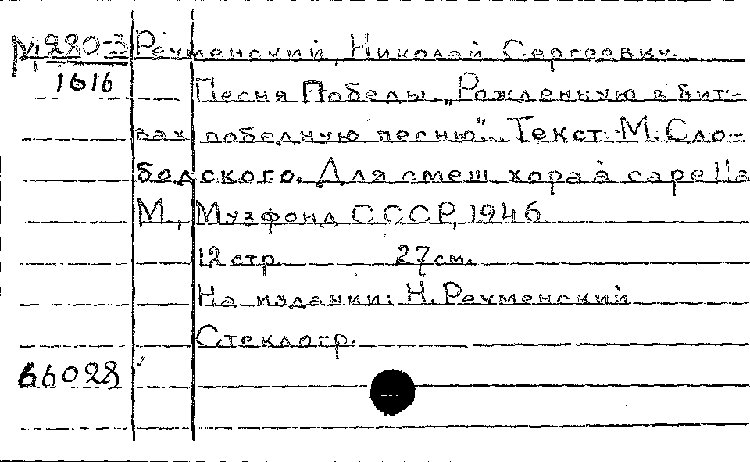 М 280-3 Речменский, Николай Сергеевич
1616
Песня Победы. „Рожденную в бит-
вах победную песню". Текст М. Сло-
бодского. Для смеш хора à capella
М., Музфонд СССР, 1946
12 стр. 27 см.
На издании: Н. Речменский
Стеклогр.
66028